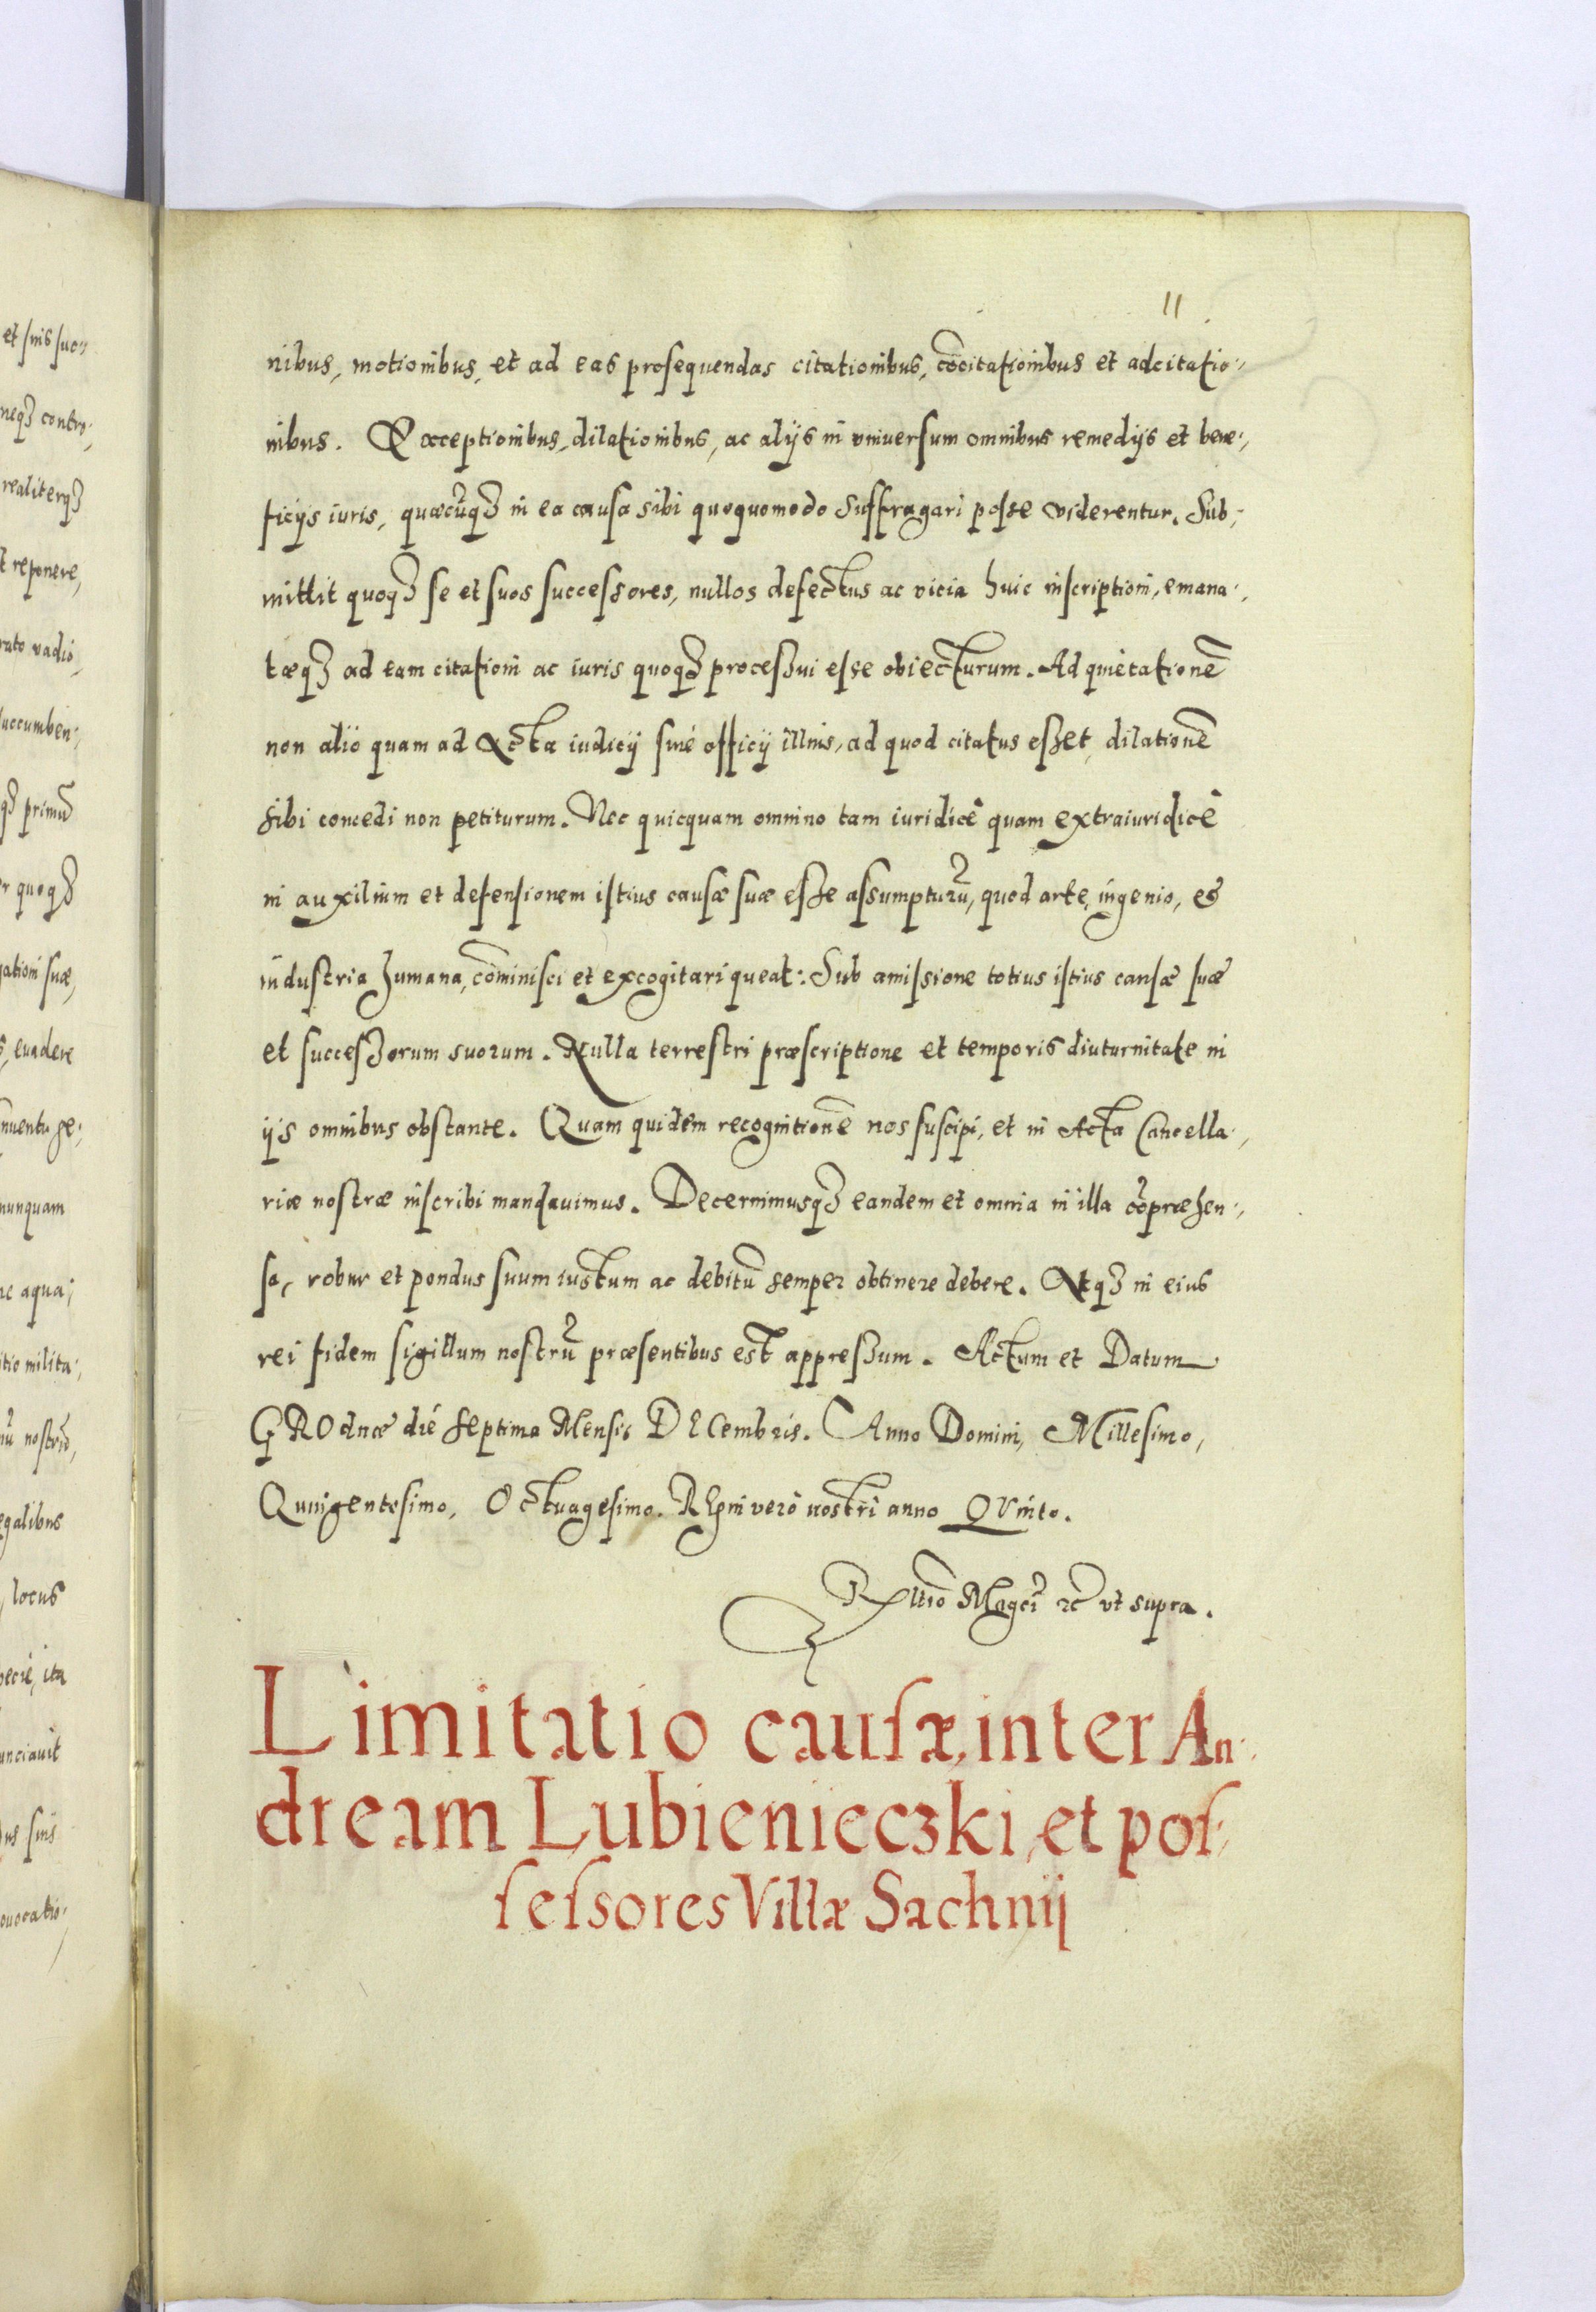 11
nibus, motionibus, et ad eas prosequendas citationibus, cōcitationibus et adcitatio-
nibus. Exceptionibus, dilationibus, ac alijs in vniuersum omnibus remedijs et bene-
ficijs iuris, quæcūqꝫ in ea causa sibi quoquomodo suffragari posse viderentur. Sub-
mittit quoqꝫ se et suos successores, nullos defectus ac vicia huic inscriptioni, emana-
tæqꝫ ad eam citationi ac iuris quoqꝫ processui esse obiecturum. Ad quietationē
non alio quam ad Acta iudicij siue officij illius, ad quod citatus esset, dilationē
sibi concedi non petiturum. Nec quicquam omnino tam iuridicê quam extraiuridicê
in auxilium et defensionem istius causæ suæ esse assumpturū, quod arte, ingenio, et
industria humana, cōminisci et excogitari queat: Sub amissione totius istius causæ suæ
et successorum suorum. Nulla terrestri præscriptione et temporis diuturnitate in
ijs omnibus obstante. Quam quidem recognitionē nos suscipi, et in Acta Cancella-
riæ nostræ inscribi mandauimus. Decernimusqꝫ eandem et omnia in illa cōpræhen-
sa, robur et pondus suum iustum ac debitū semper obtinere debere. Atqꝫ in eius
rei fidem sigillum nostrū præsentibus est appressum. Actum et Datum
GROdnæ die septima Mensis DECembris. Anno Domini, Millesimo,
Quingentesimo, Octuagesimo. Regni verò nostri anno QVinto.
Rltio Magci ꝛc vt supra.
Limitatio causæ, inter An-
dream Lubienieczki, et pos-
sessores Villæ Sachnij
et suis suc-
neqꝫ contro-
realiterqꝫ
reponere,
vadio,
succumben-
qꝫ primū
quoqꝫ
suæ,
euadere
nunquam
aqua-
milita-
locus
ita
suis